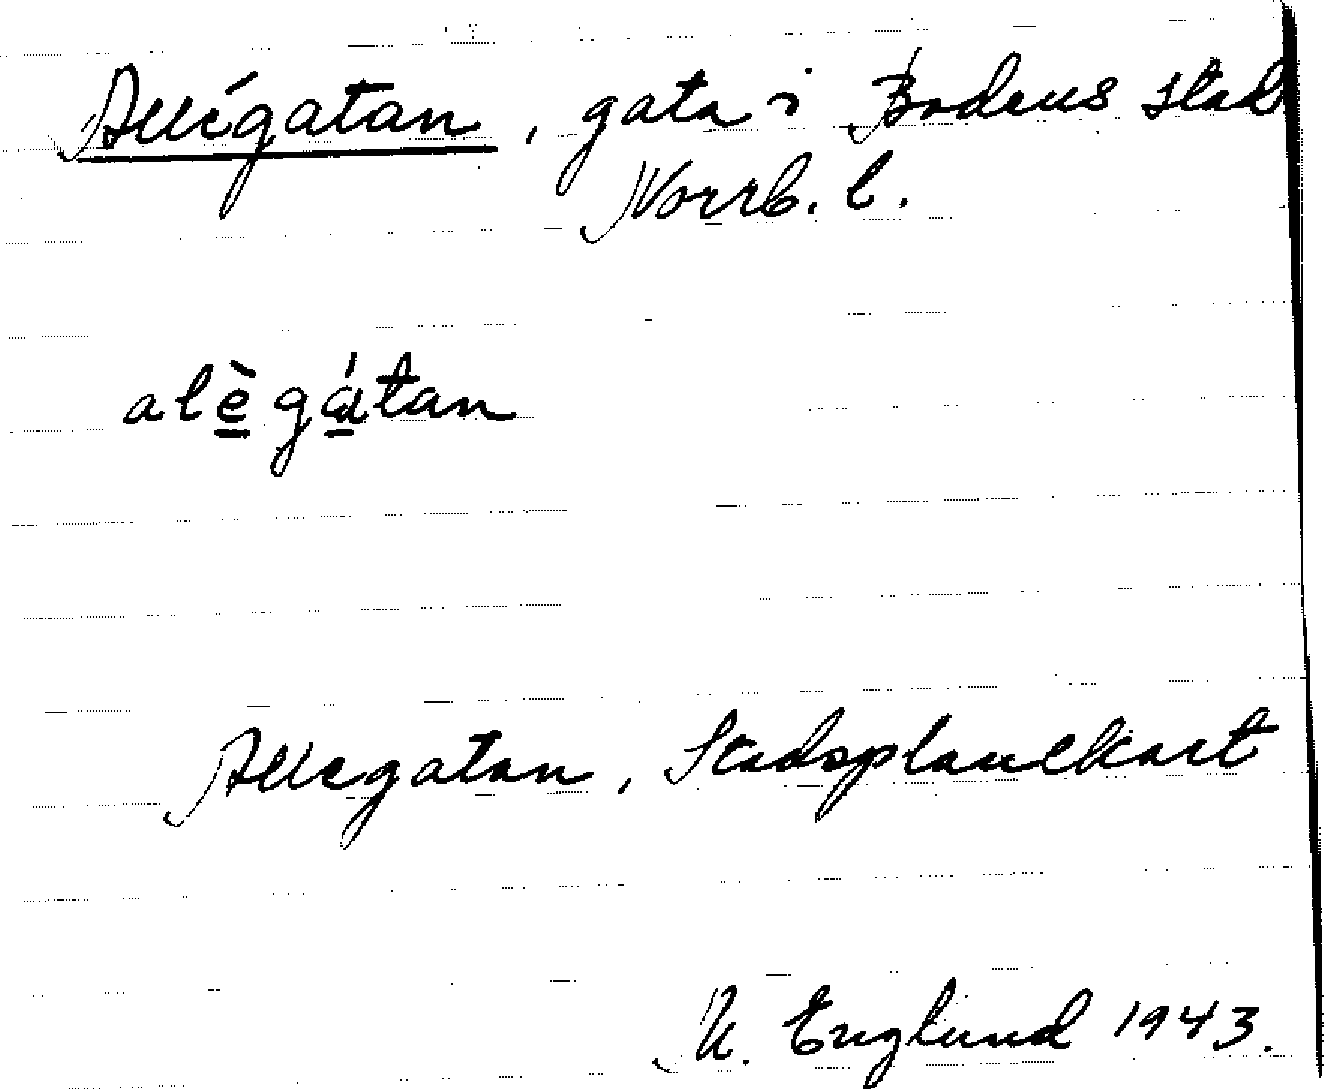 Allégatan, gata i Bodens stad
Norrb. l.
alègátan
Allégatan, Stadsplanekart
N. Englund 1943.